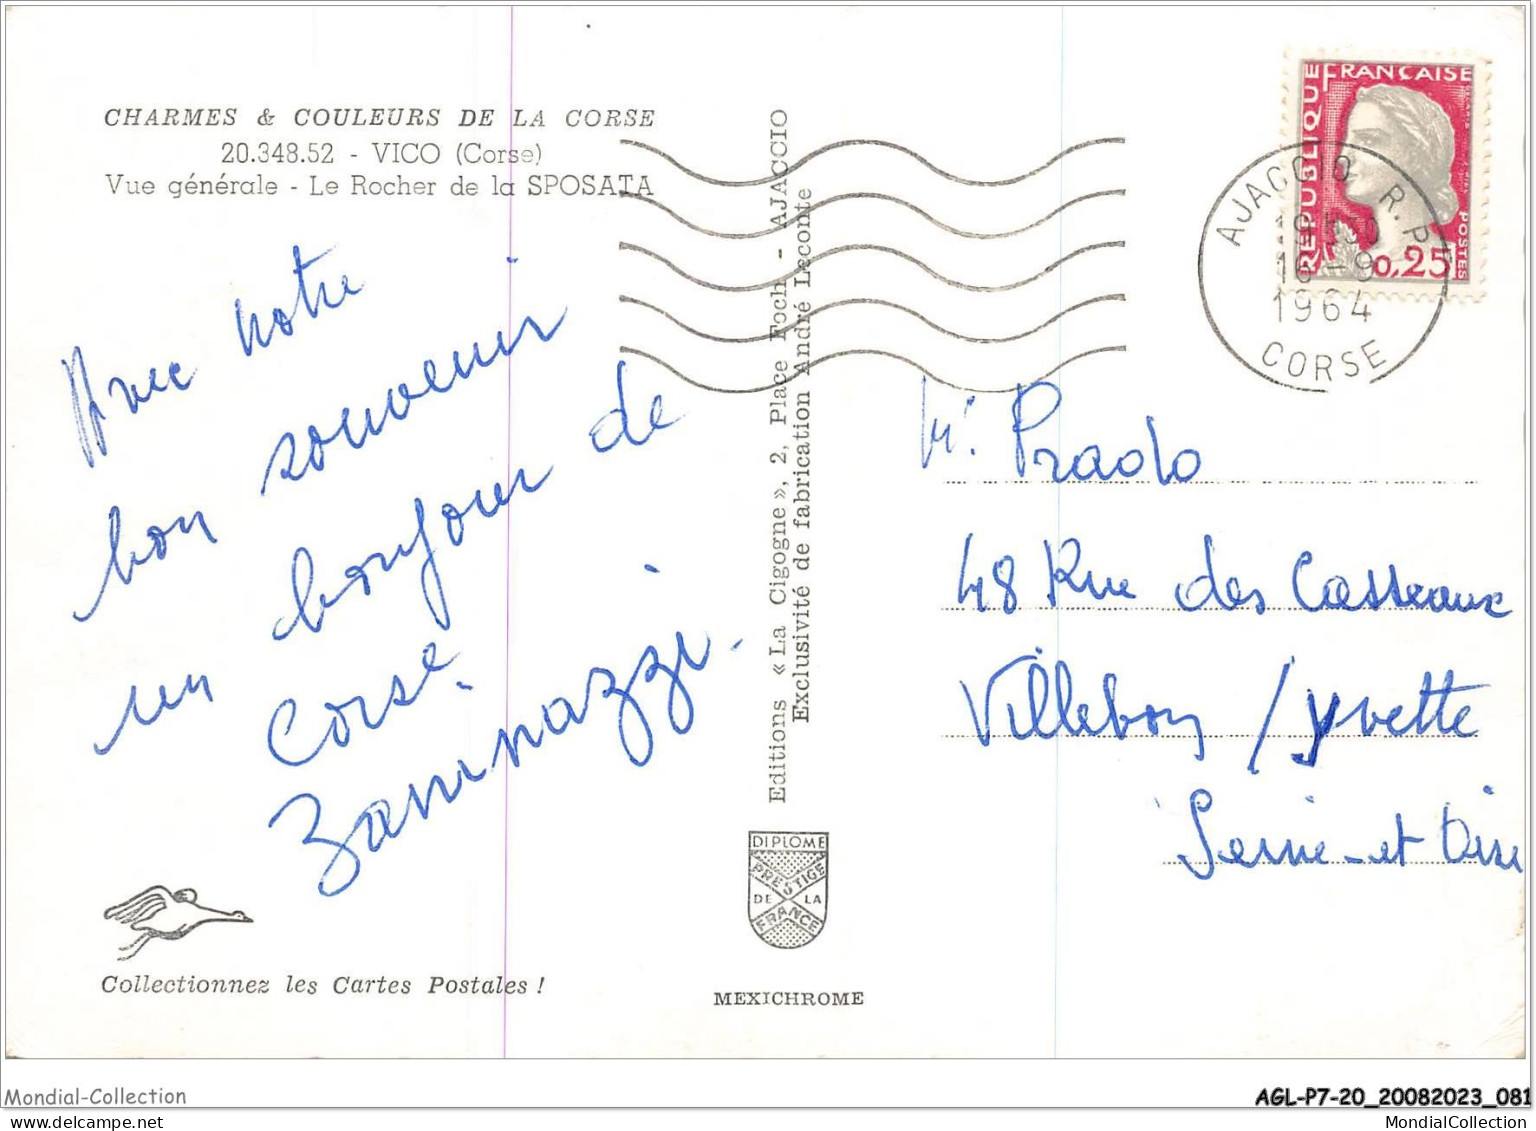 CHARMES & COULEURS DE LA CORSE
20.348.52 - VICO (Corse)
Vue générale - Le Rocher de la SPOSATA
Avec notre
bon souvenir
un bonjour de
Corse.
Zaninazzi.
Collectionnez les Cartes Postales !
Editions «La Cigogne», 2, Place Foch - AJACCIO
Exclusivité de fabrication André Leconte
DIPLOME
PRESTIGE
DE LA
FRANCE
MEXICHROME
REPUBLIQUE FRANÇAISE
POSTES
0,25
AJACCIO R.P.
16-9
1964
CORSE
Mr. Prado
48 Rue des Casseaux
Villebon / Yvette
Seine-et Oise
Mondial-Collection
AGL-P7-20_20082023_081
MondialCollection